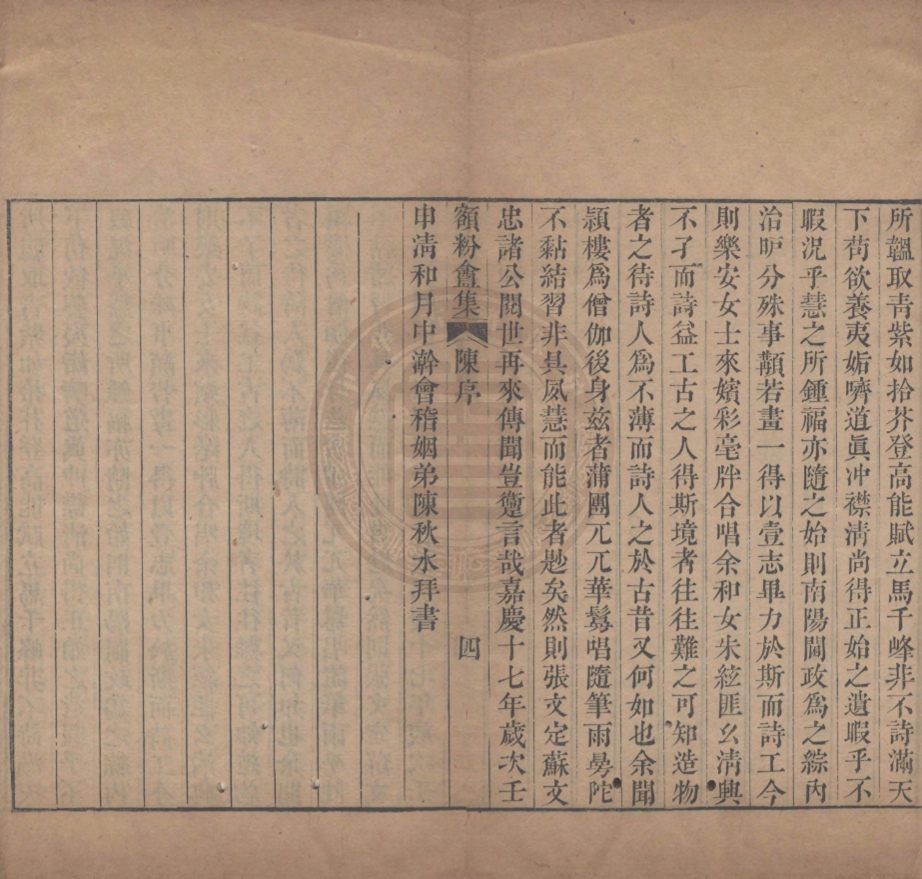 所韞取青紫如拾芥登高能賦立馬千峰非不詩滿天
下苟欲養夷姤嚌道眞冲襟淸尚得正始之遺暇乎不
暇況乎慧之所鍾福亦隨之始則南陽閫政爲之綜內
治戶分殊事顜若畫一得以壹志畢力於斯而詩工今
則樂安女士來嬪彩毫牉合唱余和女朱絃匪幺淸興
不孑而詩益工古之人得斯境者往往難之可知造物
者之待詩人爲不薄而詩人之於古昔又何如也余聞
潁樓爲僧伽後身兹者蒲團兀兀華鬘唱隨筆雨曼陀
不黏結習非具夙慧而能此者尟矣然則張文定蘇文
忠諸公閱世再來傳聞豈躗言哉嘉慶十七年歲次壬
額粉盦集 陳序 四
申淸和月中澣會稽姻弟陳秋水拜書